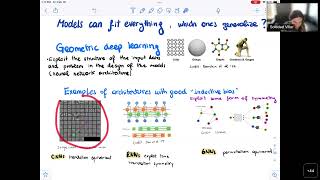 Models can fit everything, which ones generalize?
Geometric deep learning
• Exploit the structure of the input data
and problem in the design of the models
(neural network architecture)
Grids
Groups
Graphs
Examples of architectures with good "inductive bias"
Exploit some form of symmetry
CNNs: translation equivariant
RNNs: exploit time
translation symmetry
GNNs: permutation equivariant
Soledad Villar
+44